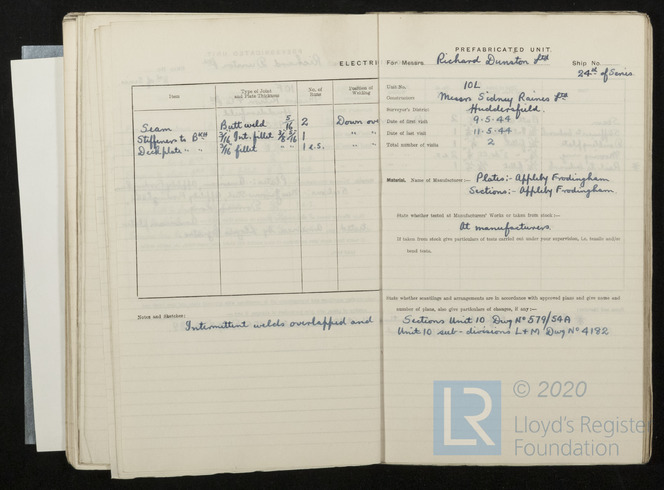 ELECTRI
Item
Type of Joint and Plate Thickness
No. of Runs
Position of Welding
Seam Butt weld 5/16 2 Down
Stiffeners to 3/16 Int. fillet 1 " "
Deckplate " " 3/16 fillet " " 1 " "
Notes and Sketches:
Intermittent welds overlapped and
PREFABRICATED UNIT.
For Messrs Richard Dunston Ltd Ship No.
24th of Series
Unit No. 10L
Constructors Messrs Sidney Raines Ltd
Surveyor's District Huddersfield.
Date of first visit 9.5.44
Date of last visit 11.5.44
Total number of visits 2
Material. Name of Manufacturer:— Plates:- Appleby Frodingham
Sections:- Appleby Frodingham.
State whether tested at Manufacturers' Works or taken from stock:—
At manufacturers.
If taken from stock give particulars of tests carried out under your supervision, i.e. tensile and/or
bend tests.
State whether scantlings and arrangements are in accordance with approved plans and give name and
number of plans, also give particulars of changes, if any:—
Sections Unit 10 Dwg No 579/54A
Unit 10 sub-divisions L & M Dwg No 4192
© 2020
LR
Lloyd's Register
Foundation